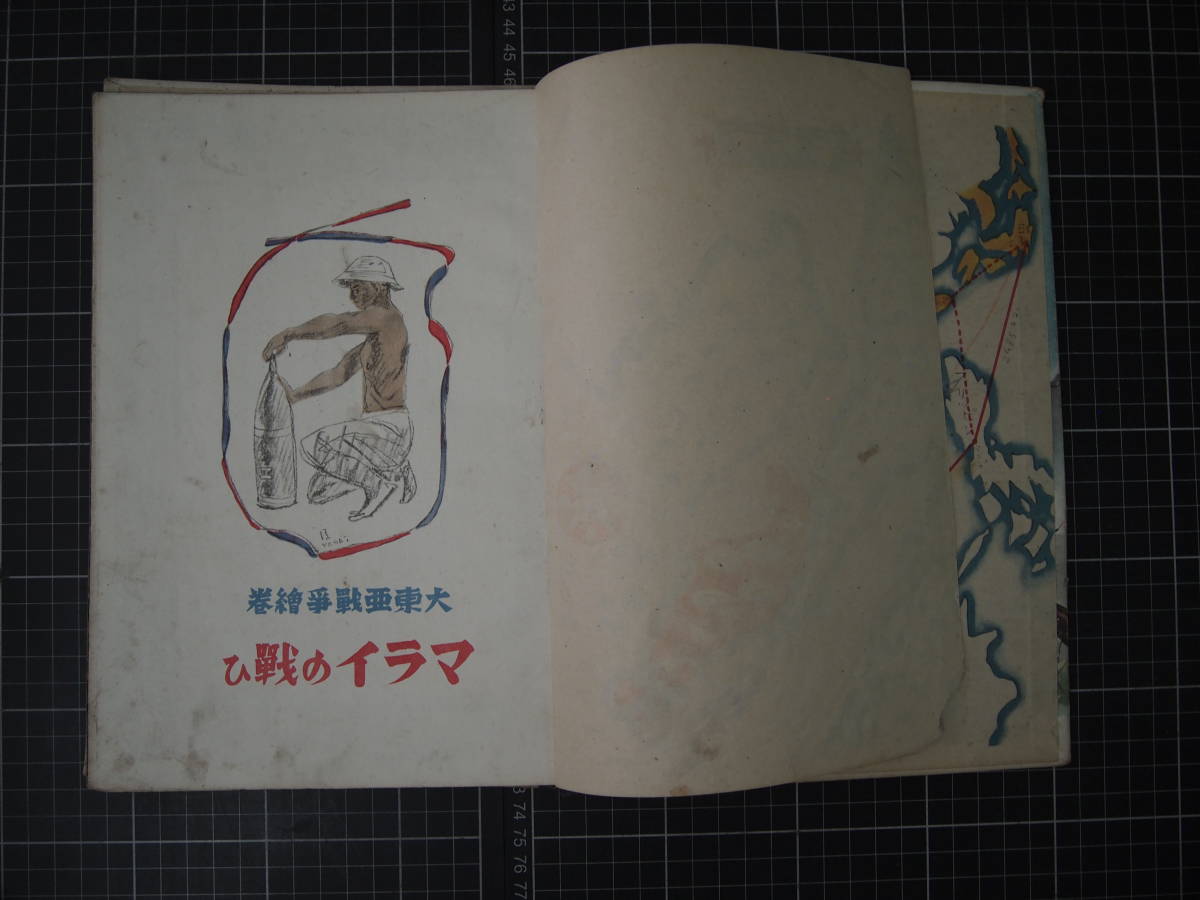 大東亜戰爭繪巻
マライの戰ひ
43
44
45
46
73
74
75
76
77